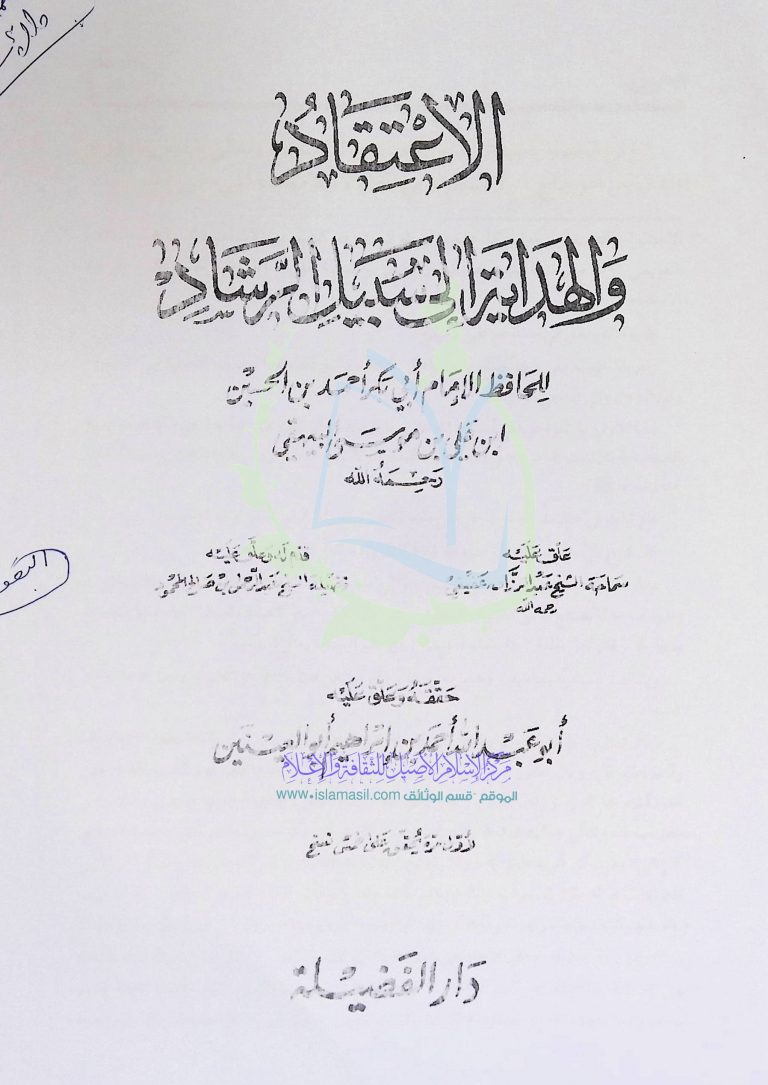 الاعْتِقَادُ
وَالهِدَايَةُ إِلَى سَبِيلِ الرَّشَادِ
لِلحَافِظ الإِمَام أَبي بَكر أحمَد بن الحُسَين
ابن عَلي بن موسى البَيهقي
رَحِمَهُ الله
عَلّق عَلَيْه
سماحة الشيخ عَبْد الرزاق عَفيفي
رحمه الله
قدم له وعلّق عَلَيْه
فضيلة الشيخ عَبد الرحمن بن صَالح المحمود
حَقّقَهُ وَعَلّق عَلَيْه
أبو عَبْد الله أحمَد بن إبراهيم أبو العينَين
مركز الإسلام الأصيل للثقافة والإعلام
الموقع - قسم الوثائق www.islamasil.com
لأول مرة يُحقّق عَلى خمس نسخ
دَار الفَضِيْلة